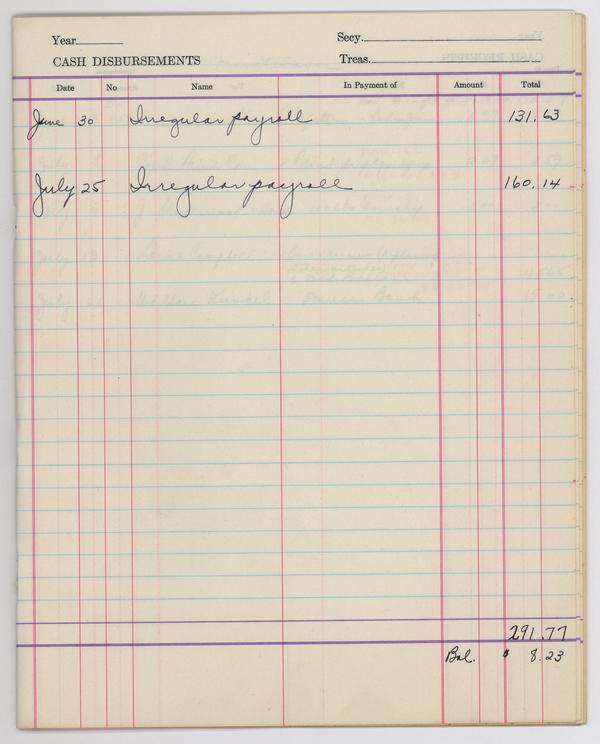 Year
Secy.
CASH DISBURSEMENTS
Treas.
Date No Name In Payment of Amount Total
June 30 Irregular payroll 131.63
July 25 Irregular payroll 160.14
291.77
Bal. $ 8.23